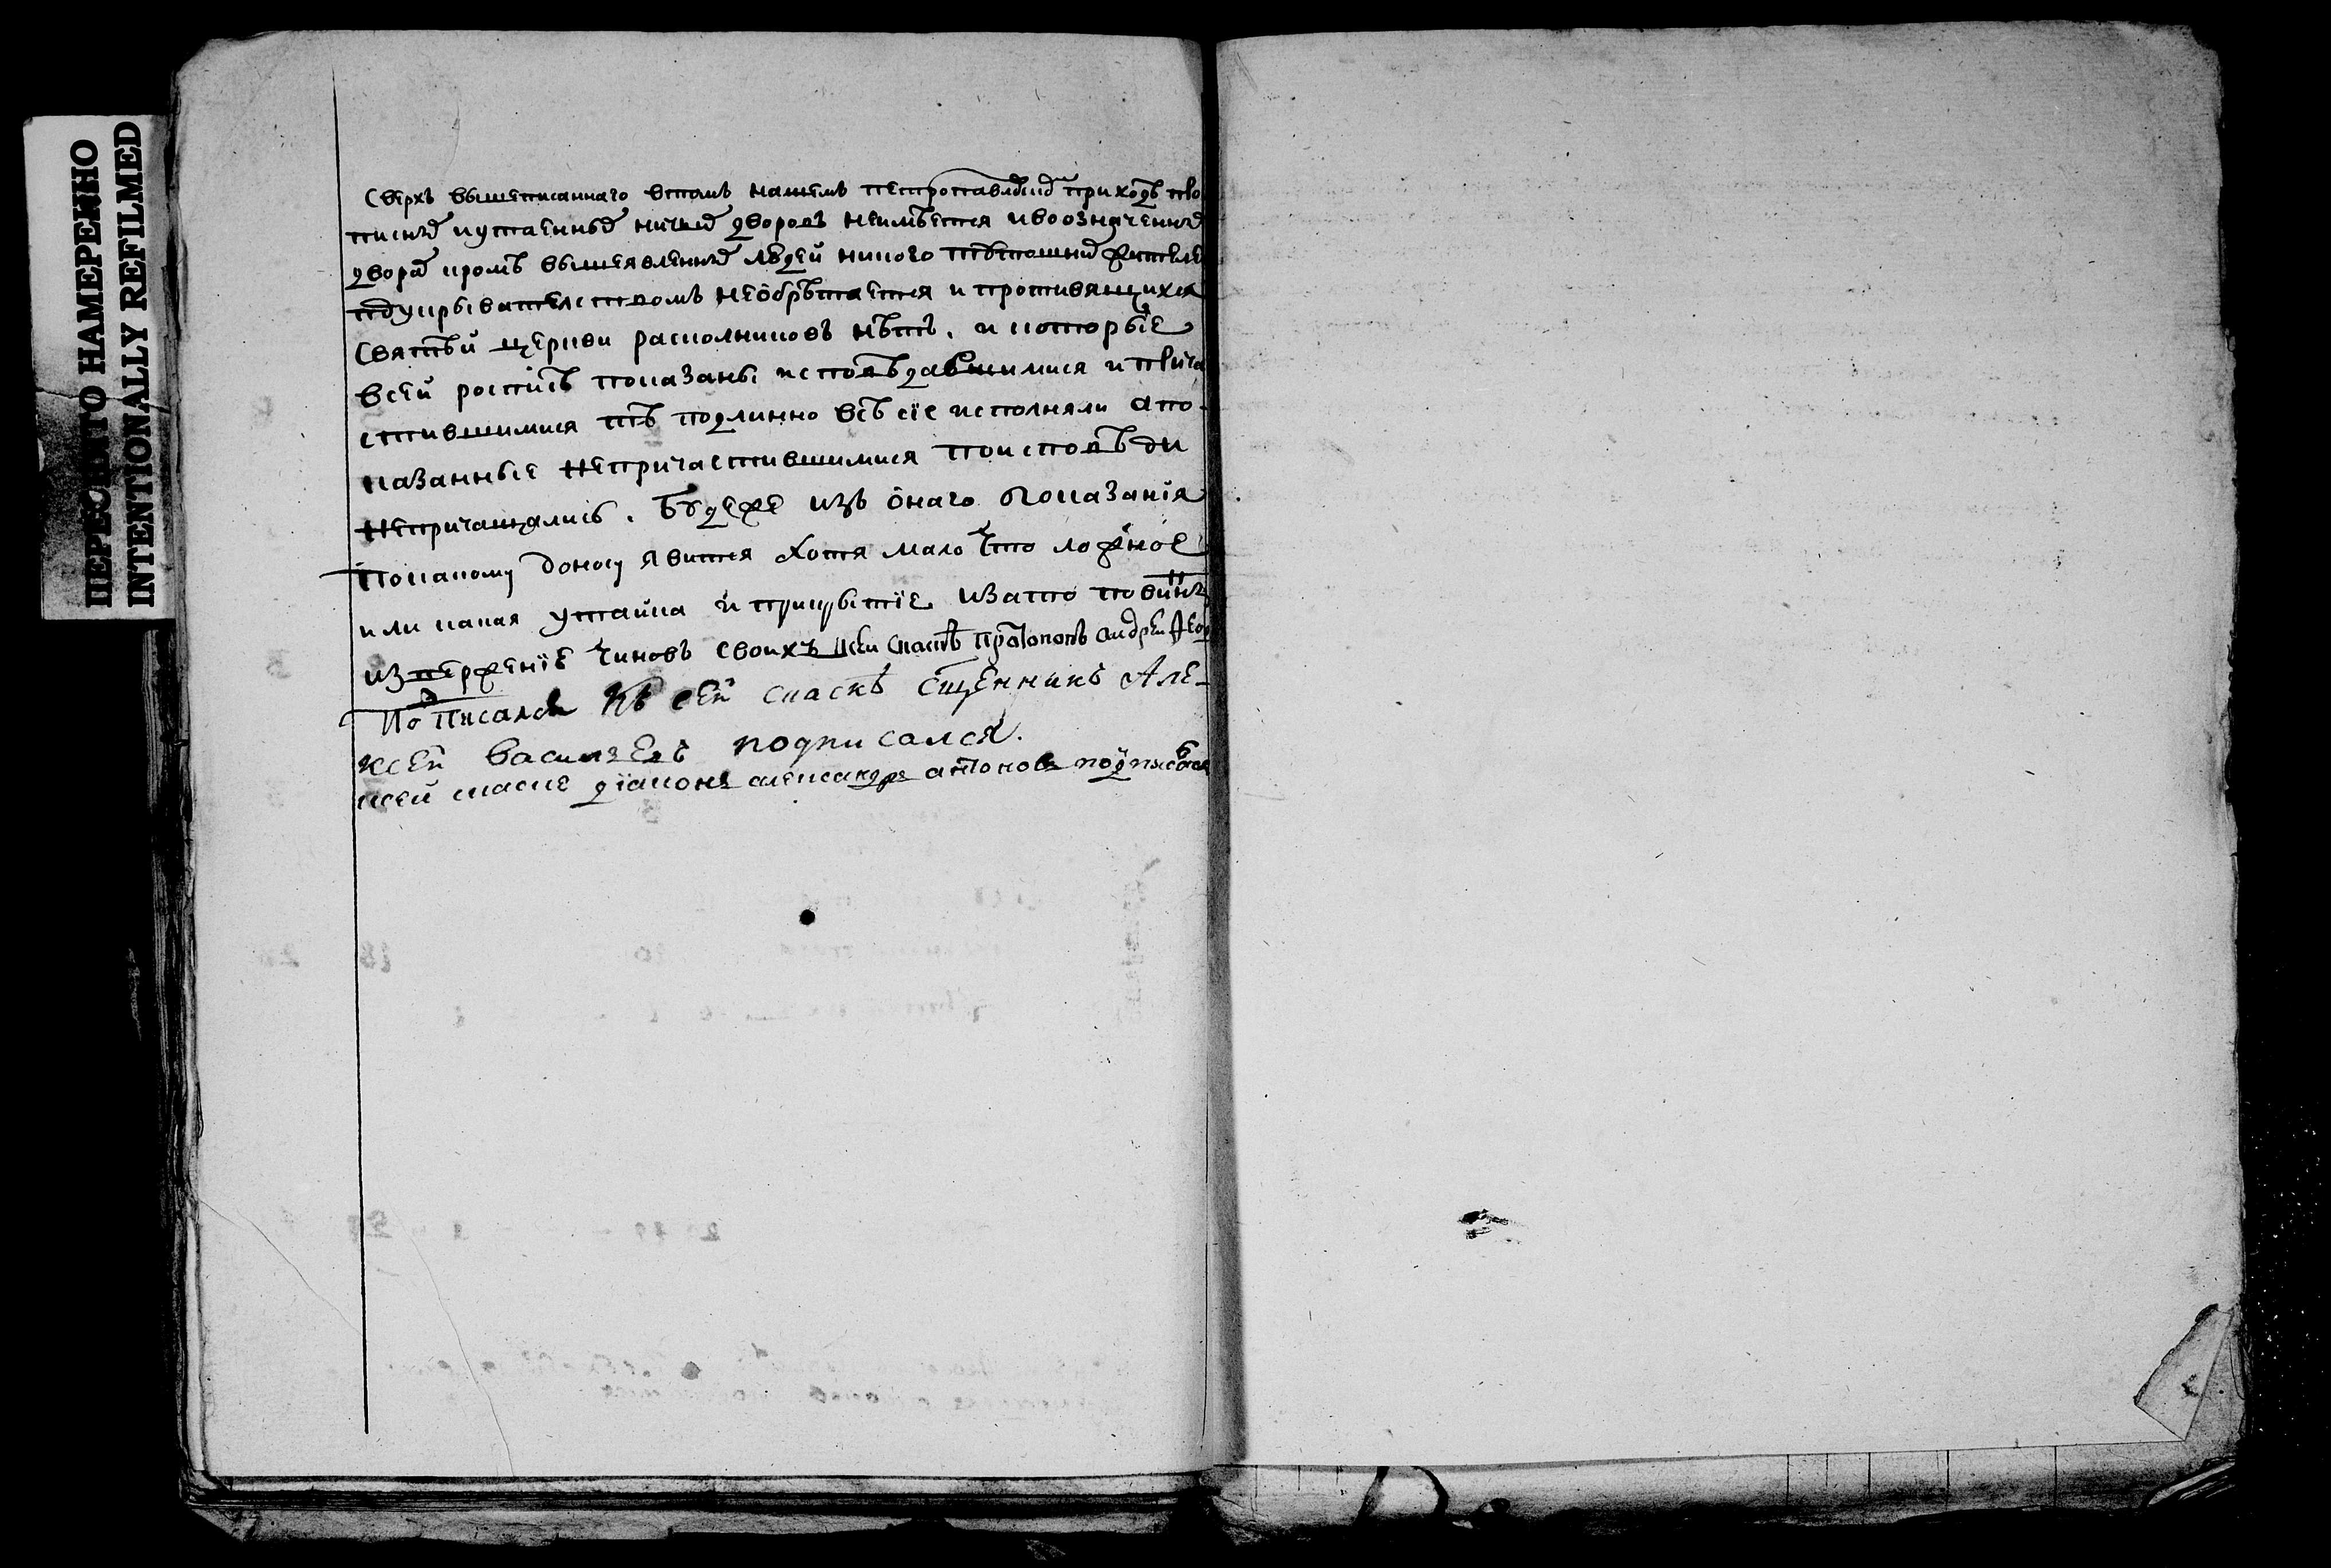 ПЕРЕСНЯТО НАМЕРЕННО
INTENTIONALLY REFILMED
Сверхъ вышеписаннаго втомъ нашемъ приходѣ
иутаенныхъ ничьихъ дворовъ неимѣется ивоозначенныхъ
дворахъ кромѣ вышеявленныхъ людей никого
подукрывателствомъ необрѣтается и противящихся
Святѣй церкви расколниковъ нѣтъ. и которые
всей росписѣ показаны исповѣдавшимися и прича
стившимися тѣ подлинно всѣ сїе исполняли апо
казанные непричастившимися поисповѣди
непричащались. Будеже изъ онаго показанїя
покакому доносу явится хотя мало что ложное
или какая утайка и прикрытїе изато повинны
изверженїе чиновъ своихъ ксеи скаскѣ протопопъ андреи
Подписался Къ сеи скаскѣ сщенникъ Але-
ксеи василъевъ подписался.
ксеи скаске дїаконъ александръ антоновъ подписался